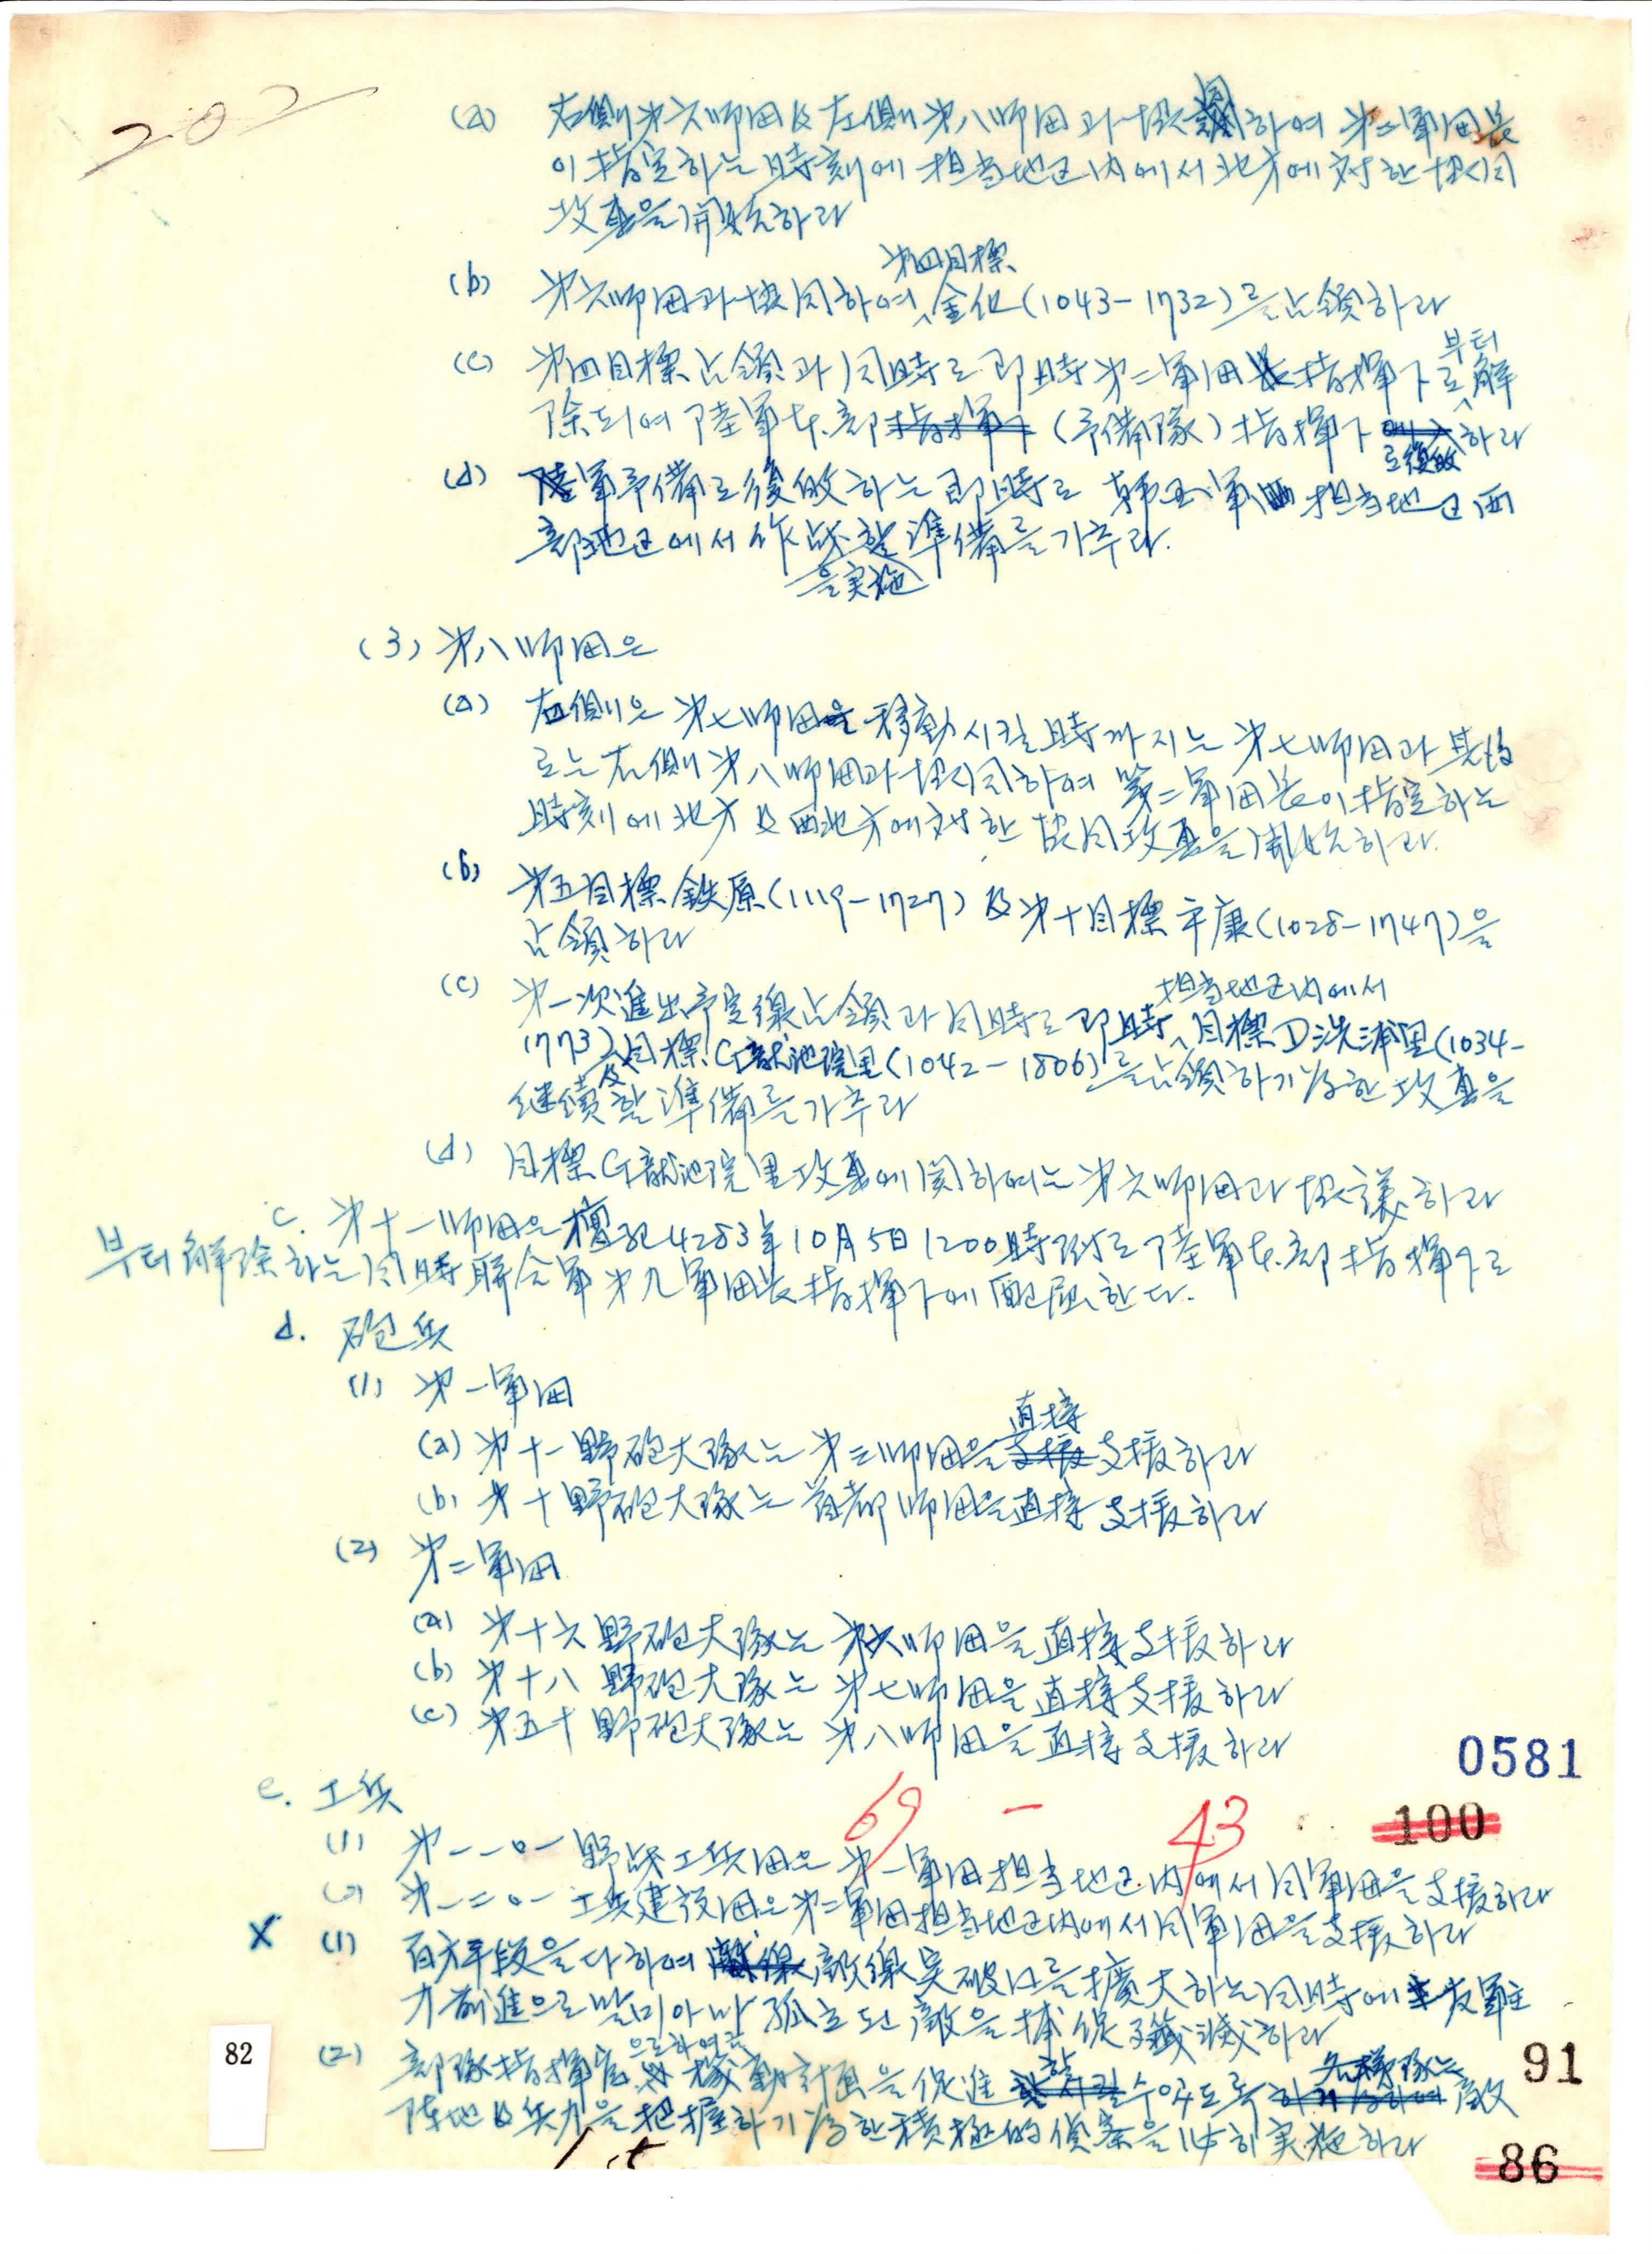 202
(a) 右側 第六師団 及 左側 第八師団과 協調하여 第二軍団長
이 指定하는 時刻에 担当地区内에서 北方에 対한 協同
攻勢을 開始하라
第四目標
(b) 第六師団과 協同하여 金化(1043-1732)를 占領하라
부터
(c) 第四目標 占領과 同時로 即時 第二軍団長 指揮下로 解
除되여 陸軍本部 指揮下 (予備隊) 指揮下 하라
로 復帰
(d) 陸軍予備로 復帰하는 即時로 韓国軍 担当地区 西
部地区에서 作战할 準備를 가추라.
을 実施
(3) 第八師団은
(a) 右側은 第七師団을 移動시킬 時까지는 第七師団과 其後
로는 右側 第六師団과 協同하여 第二軍団長이 指定하는
時刻에 北方 及 西北方에 対한 協同攻勢을 開始하라.
(b) 第五目標 鉄原(1119-1727) 及 第十目標 平康(1028-1747)을
占領하라
担当地区内에서
(c) 第一次進出予定線 占領과 同時로 即時 目標 D 洗浦里(1034-
1773) 及 目標 G 新池院里(1042-1806)를 占領하기 爲한 攻勢을
継続할 準備를 가추라
(d) 目標 G 新池院里 攻勢에 関하여는 第六師団과 協議하라
c. 第十一師団은 檀紀4283年10月5日1200時附로 陸軍本部 指揮下로
부터 解除하는 同時 聯合軍 第九軍団長 指揮下에 配属한다.
d. 砲兵
(1) 第一軍団
直接
(a) 第十一野砲大隊는 第三師団을 支援 支援하라
(b) 第十野砲大隊는 首都師団을 直接 支援하라
(2) 第二軍団
(a) 第十六野砲大隊는 第六師団을 直接支援하라
(b) 第十八野砲大隊는 第七師団을 直接支援하라
(c) 第五十野砲大隊는 第八師団을 直接支援하라
0581
e. 工兵
69 - 43
100
(1) 第一一〇一野战工兵団은 第一軍団 担当地区内에서 同軍団을 支援하라
(2) 第一二〇一工兵建設団은 第二軍団 担当地区内에서 同軍団을 支援하라
X (1) 百方手段을 다하여 敵線突破口를 擴大하는 同時에 友軍主
力前進으로 말미아마 孤立된 敵을 捕促殲滅하라
으로하여금
(2) 部隊指揮官 稼動計画을 促進할 수 있도록 各梯隊는 敵
陣地 及 兵力을 把握하기 爲한 積極的 偵察을 実施하라
82
91
86